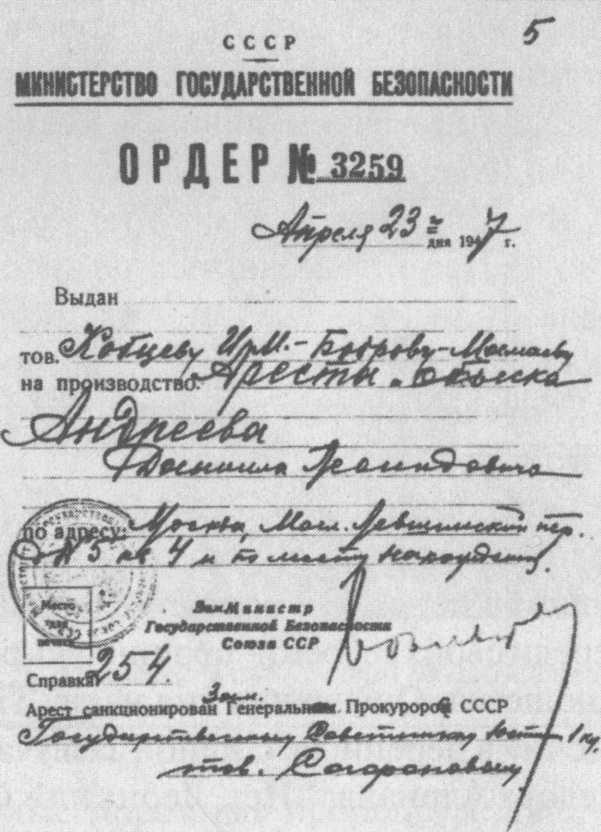 5
СССР
МИНИСТЕРСТВО ГОСУДАРСТВЕННОЙ БЕЗОПАСНОСТИ
ОРДЕР № 3259
Апреля 23 дня 1947 г.
Выдан
тов. Кобцеву И.М.-
на производство: Аресты и обыска
Андреева
Даниила Леонидовича
по адресу: Москва, Мал. Левшинский пер.
5 кв 4 и по месту нахождения.
Место
для
печати
Зам Министр
Государственной Безопасности
Союза ССР
Справка 254.
Зам.
Арест санкционирован Генеральным Прокурором СССР
Государственным Советником Юстиции 1 кл.
тов. Сафоновым